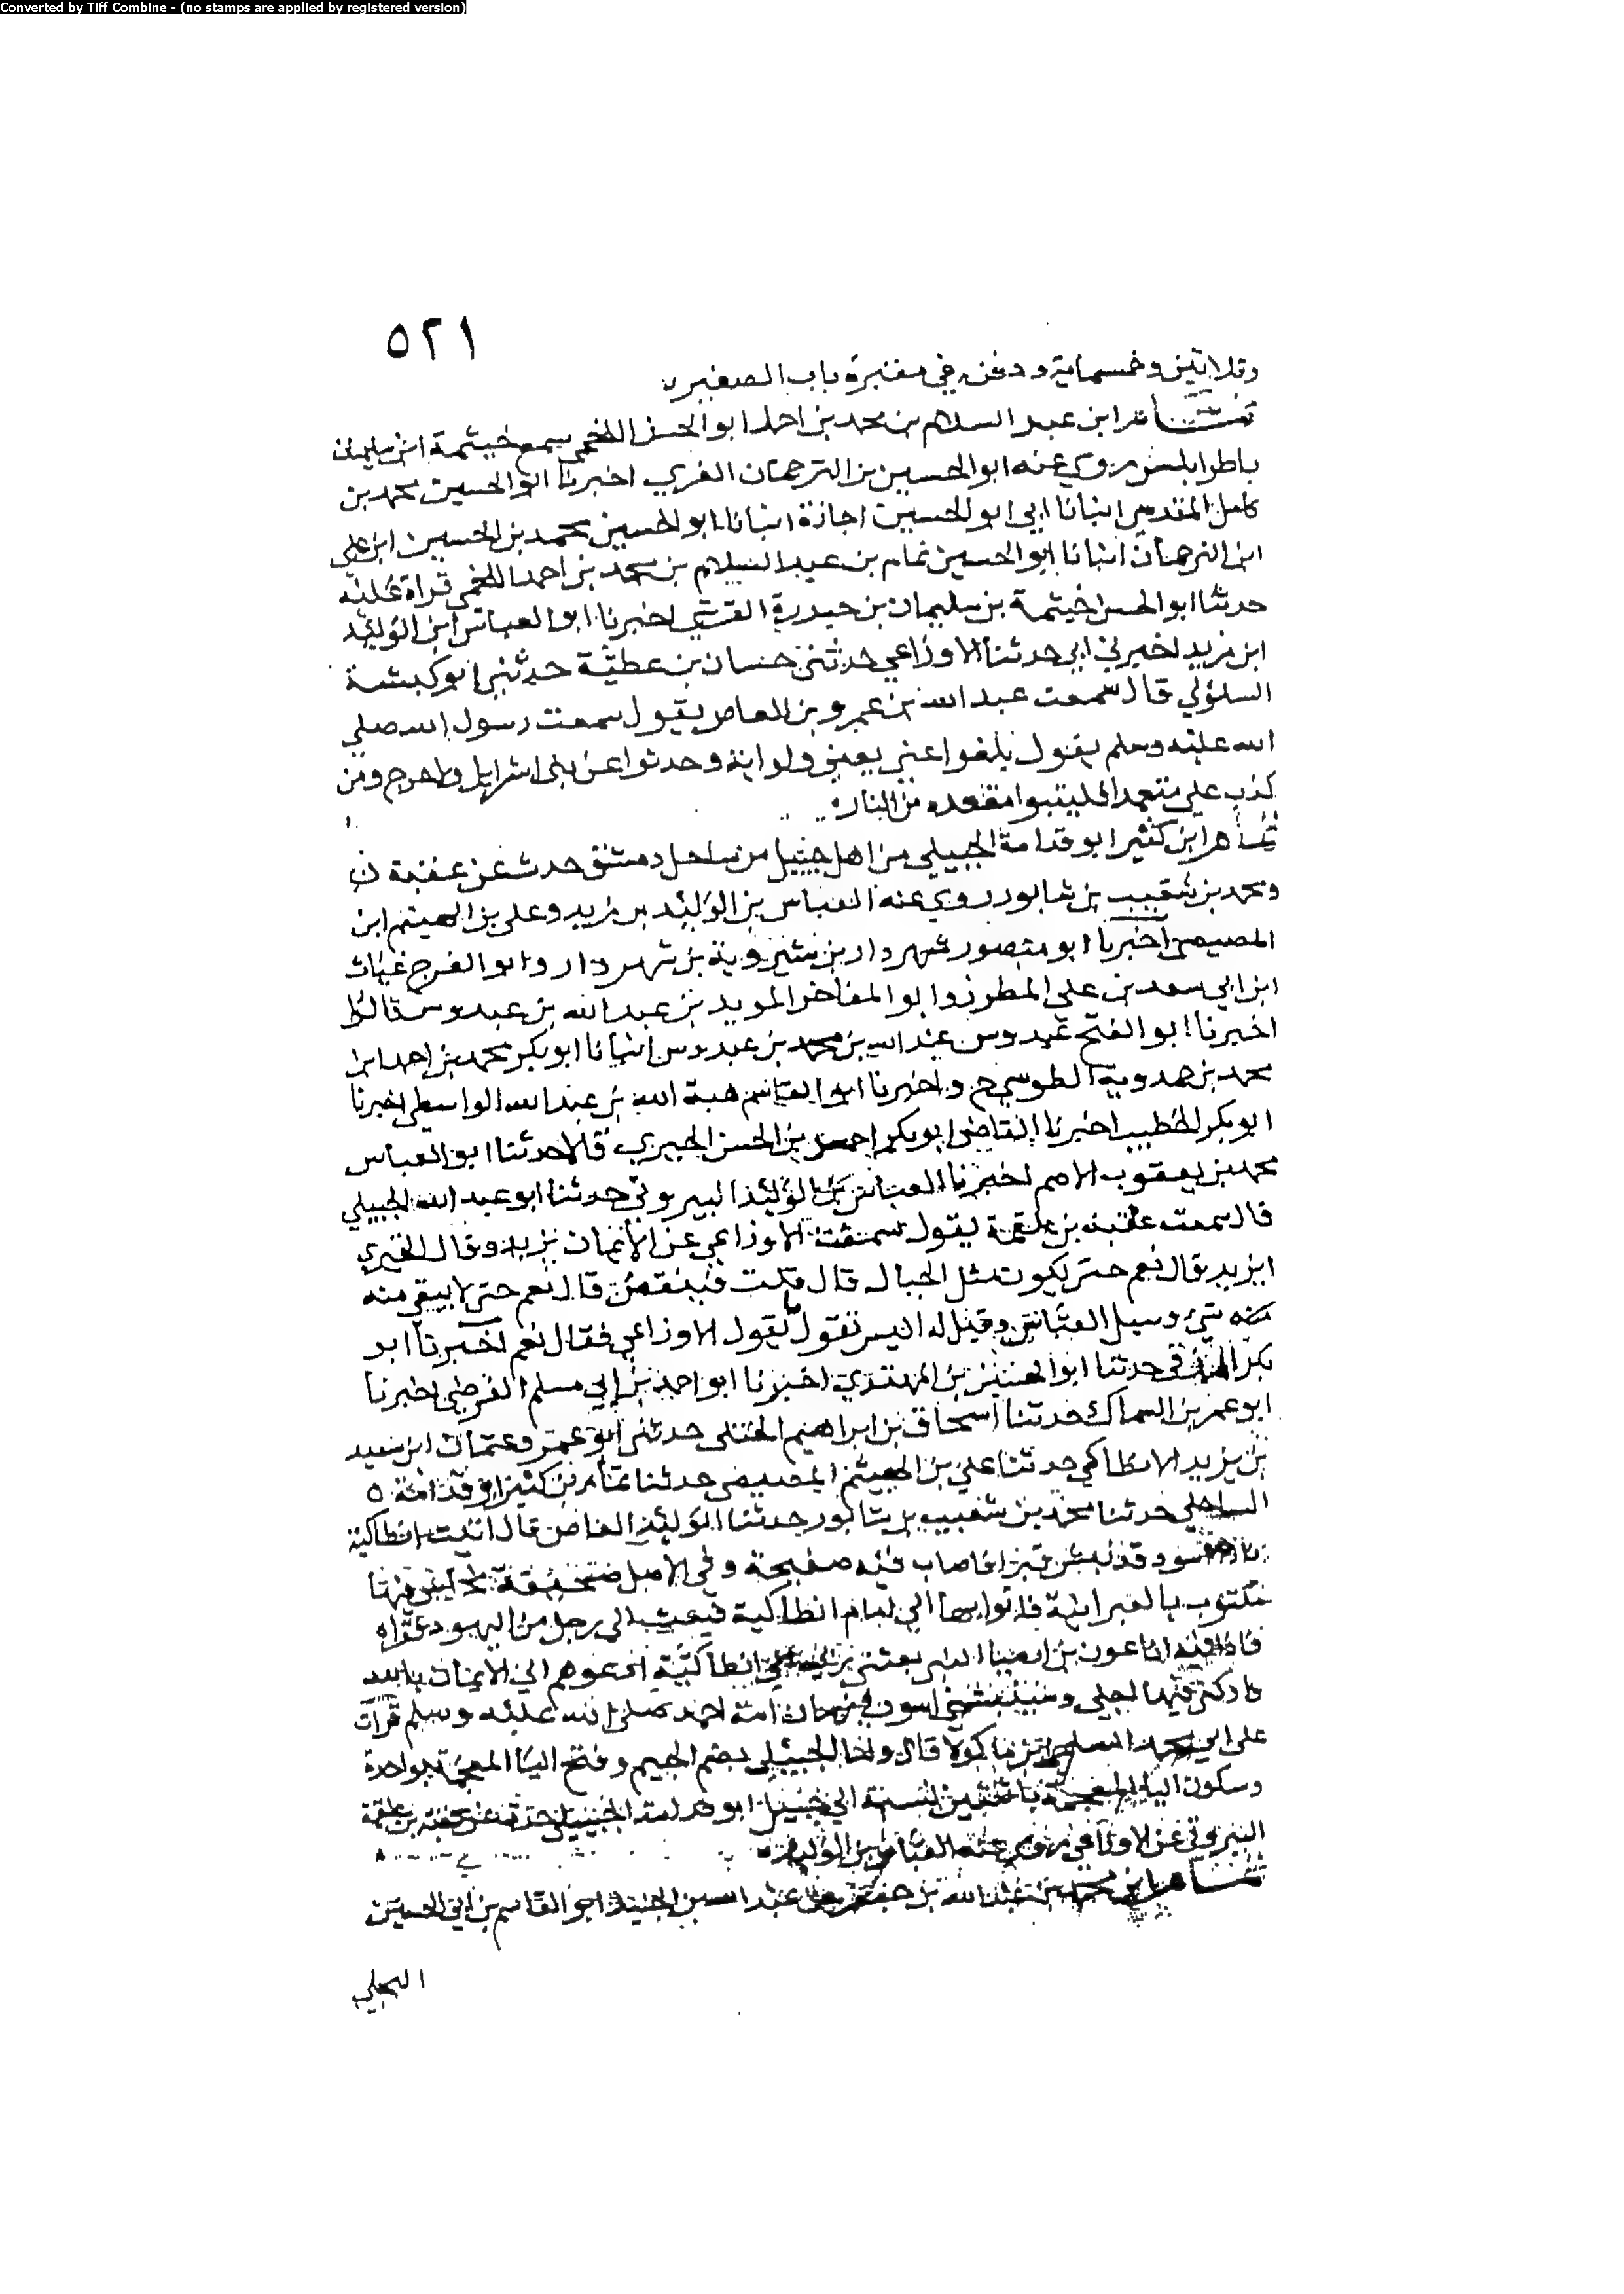 Converted by Tiff Combine - (no stamps are applied by registered version)
٥٢١
وثلاثين وخمسماية ودفن في مقبرة باب الصغير
تمام ابن عبد السلام بن محمد بن احمد ابو الحسن اللخمي سمع خيثمة ابن سليمان
باطرابلس روى عنه ابو الحسين بن الترجمان الغزي اخبرنا ابو الحسين محمد بن
كامل المقدسي انبانا ابي ابو الحسين اجازة انبانا ابو الحسين محمد بن الحسين ابن علي
ابن الترجمان انبانا ابو الحسين تمام بن عبد السلام بن محمد بن احمد اللخمي قراة عليه
حدثنا ابو الحسن خيثمة بن سليمان بن حيدرة القرشي اخبرنا ابو العباس ابن الوليد
ابن مزيد اخبرني ابي حدثنا الاوزاعي حدثني حسان بن عطية حدثني ابو كبشة
السلولي قال سمعت عبد الله بن عمرو بن العاص يقول سمعت رسول الله صلى
الله عليه وسلم يقول بلغوا عني يعني ولو اية وحدثوا عن بني اسرايل ولا حرج ومن
كذب علي متعمدا فليتبوا مقعده من النار
تمام ابن كثير ابو قدامة الجبيلي من اهل جبيل من ساحل دمشق حدث عن عقبة
ومحمد بن شعيب بن شابور روى عنه العباس بن الوليد بن مزيد وعلي بن الهيثم ابن
المصيصي اخبرنا ابو منصور شهردار بن شيروية بن شهردار وابو الفرج غياث
ابن ابي سعد بن علي المطرز وابو المفاخر المويد بن عبد الله بن عبدوس قالوا
اخبرنا ابو الفتح عبدوس عبد الله بن محمد بن عبدوس انبانا ابو بكر محمد بن احمد ابن
محمد بن حمدوية الطوسي ح واخبرنا ابو القاسم هبة الله بن عبد الله الواسطي اخبرنا
ابو بكر الخطيب اخبرنا القاضي ابو بكر احمد بن الحسن الحيري قالا حدثنا ابو العباس
محمد بن يعقوب الاصم اخبرنا العباس بن الوليد البيروتي حدثنا ابو عبد الله الجبيلي
قال سمعت عقبة بن علقمة يقول سمعت الاوزاعي عن الايمان يزيد وقال الحيري
ايزيد قال نعم حتى يكون مثل الجبال قال قلت فينقص قال نعم حتى لا يبقى منه
منه شيء وسيل العباس وقيل له اليس تقول بقول الاوزاعي فقال نعم اخبرنا ابو
بكر المزرفي حدثنا ابو الحسين بن المهتدي اخبرنا ابو احمد بن ابي مسلم الفرضي اخبرنا
ابو عمر بن السماك حدثنا اسحاق بن ابراهيم الختلي حدثني ابو عمرو عثمان ابن سعيد
بن يزيد الانطاكي حدثنا علي بن الهيثم المصيصي حدثنا تمام بن كثير ابو قدامة
الساحلي حدثنا محمد بن شعيب بن شابور حدثنا الوليد القاص قال اتيت انطاكية
اسود قد نبش قبرا فاصاب فيه صفيحة وفي الاصل فيها
مكتوب بالعبرانية فاتوا بها الى امام انطاكية فبعث الى رجل من اليهود فقراه
فاذا فيه انا عون بن ارميا النبي بعثني ربي الى انطاكية ادعوهم الى الايمان بالله
فادركني فيها اجلي وسينبشني اسود في زمان امة احمد صلى الله عليه وسلم قرات
على ابي محمد السلمي ابن ماكولا قال واما الجبيلي بضم الجيم وفتح البا المعجمة بواحدة
وسكون اليا المعجمة باثنتين نسبة الى جبيل ابو قدامة الجبيلي حدث عن عقبة بن علقمة
البيروتي عن الاوزاعي روى عنه العباس بن الوليد
تمام ابن محمد بن عبد الله بن جعفر بن عبد الله بن الجنيد ابو القاسم بن ابي الحسين
البجلي